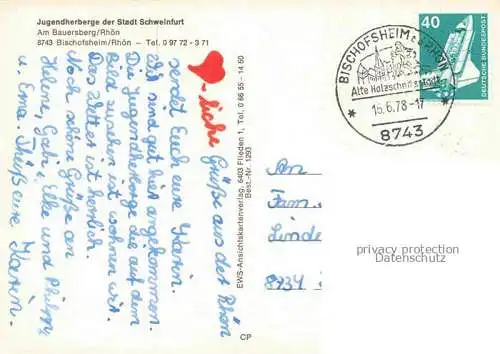 Jugendherberge der Stadt Schweinfurt
Am Bauersberg/Rhön
8743 Bischofsheim/Rhön – Tel. 0 97 72 - 3 71
-liche Grüße aus der Rhön
sendet Euch eure Karin.
Wir sind gut hier angekommen.
Die Jugendherberge die auf dem
Bild drauf ist wohnen wir.
Das Wetter ist herrlich.
Noch schöne Grüße an
Helene, Gabi, Elke und Philipp
u. Oma. Tschüß eure Karin.
EWS-Ansichtskartenverlag, 6403 Flieden 1, Tel. 0 66 55 - 14 60
Best.-Nr. 1293
CP
BISCHOFSHEIM a.d. RHÖN
Alte Holzschnitzstadt
15.6.78-17
8743
40
DEUTSCHE BUNDESPOST
An
Fam.
Linde
8734
privacy protection
Datenschutz